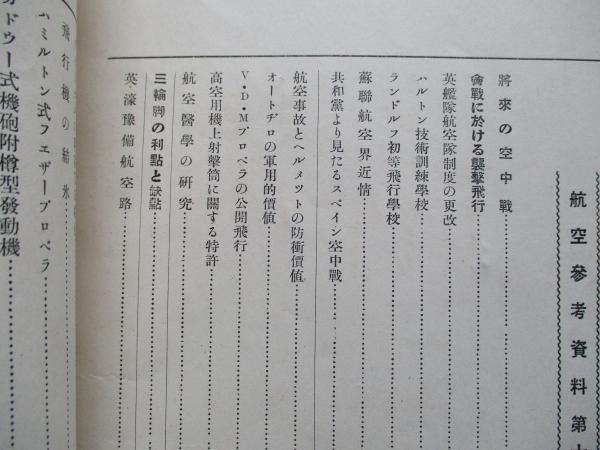 航空參考資料第十
將來の空中戰
會戰に於ける襲擊飛行
英艦隊航空隊制度の更改
ハルトン技術訓練學校
ランドルフ初等飛行學校
蘇聯航空界近情
共和黨より見たるスペイン空中戰
航空事故とヘルメットの防衝價値
オートヂロの軍用的價値
V・D・Mプロペラの公開飛行
高空用機上射擊筒に關する特許
航空醫學の硏究
三輪脚の利點と缺點
英、濠豫備航空路
飛行機の結氷
ハミルトン式フェザープロペラ
ガドゥー式機砲附樽型發動機